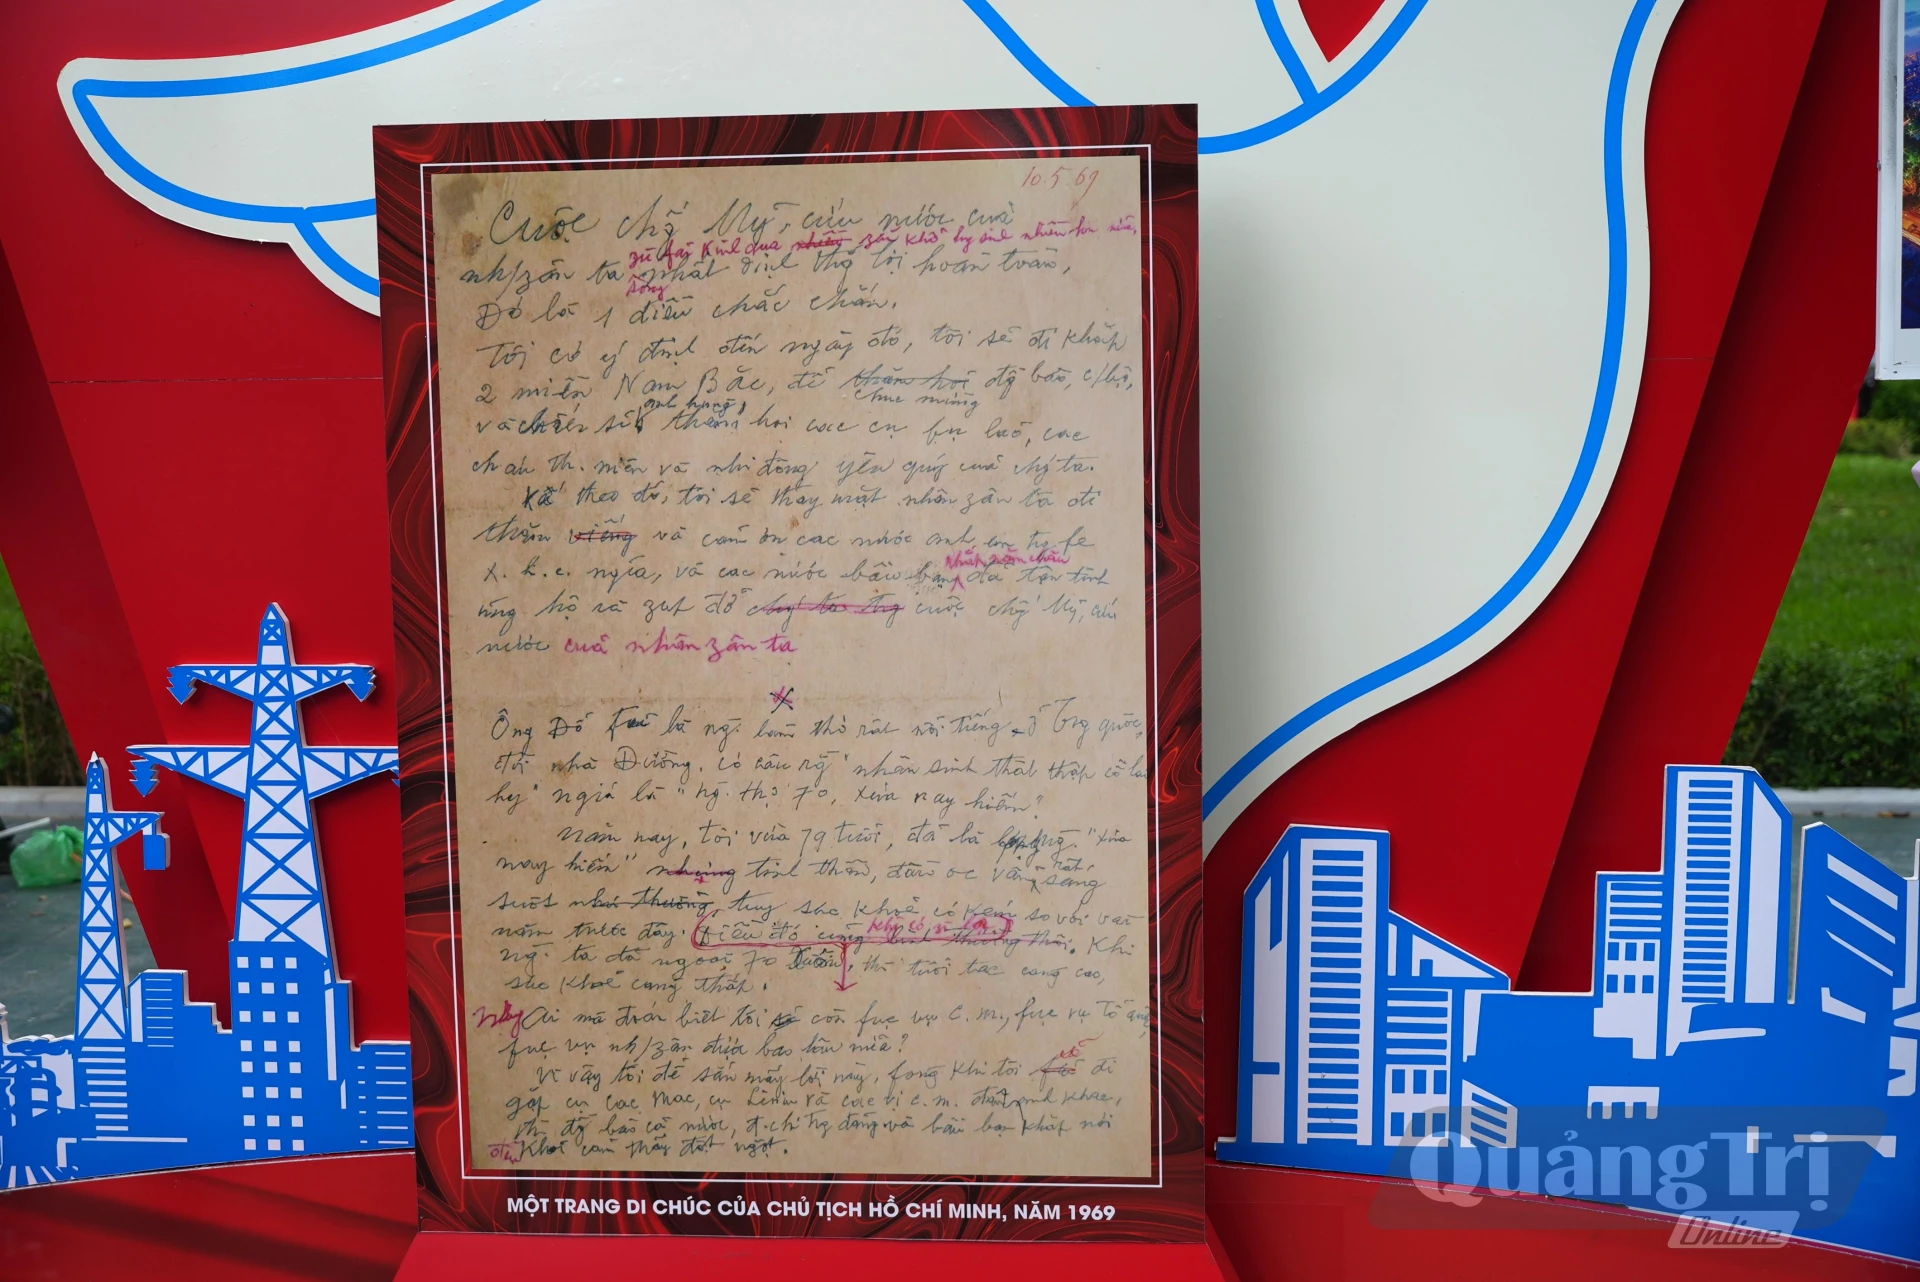 10.5.69
Cuộc chố'ng Mỹ, cứu nước của
zù fải kinh qua nhiều zan khổ hy sinh nhiều hơn nữa,
nh/zân ta nhất định thắng lợi hoàn toàn,
song
Đó là 1 điều chắc chắn.
Tôi có ý định đến ngày đó, tôi sẽ đi khắp
2 miền Nam Bắc, để thăm hỏi đg bào, c/bộ,
chúc mừng
anh hùng,
và chiến sĩ thăm hỏi các cụ fụ lão, các
cháu th. niên và nhi đồng yêu quý của chg ta.
Kế theo đó, tôi sẽ thay mặt nhân zân ta đi
thăm viếng và cảm ơn các nước anh em trg fe
x. h. c. ngĩa, và các nước bầu bạn đã tận tình
khắp năm châu
ủng hộ và zup đỡ chg ta trg cuộc chg Mỹ, cứu
nước của nhân zân ta
x
Ông Đỗ Fủ là ng. làm thơ rất nổi tiếng ở Trg quốc
đời nhà Đường, có câu rằng "nhân sinh thất thập cổ lai
hy" ngĩa là "ng. thọ 70, xưa nay hiếm".
Năm nay, tôi vừa 79 tuổi, đã là hạng ng. "xưa
nay hiếm" nhưng tinh thần, đầu óc vẫn rất sáng
suốt như thường, tuy sức khoẻ có kém so với vài
năm trước đây. Điều đó cũng bình thường thôi. Khi
không có gì lạ
ng. ta đã ngoài 70 xuân, thì tuổi tác càng cao,
sức khoẻ càng thấp.
Nhưng Ai mà đoán biết tôi sẽ còn fục vụ c.m., fục vụ Tổ quốc,
fục vụ nh/zân được bao lâu nữa?
Vì vậy tôi để sẵn mấy lời này, fòng khi tôi sẽ đi
gặp cụ Các Mác, cụ Lênin và các vị c.m. đàn anh khác,
thì đg bào cả nước, đ.chí trg đảng và bầu bạn khắp nơi
đều khỏi cảm thấy đột ngột.
MỘT TRANG DI CHÚC CỦA CHỦ TỊCH HỒ CHÍ MINH, NĂM 1969
Quảng Trị
Online